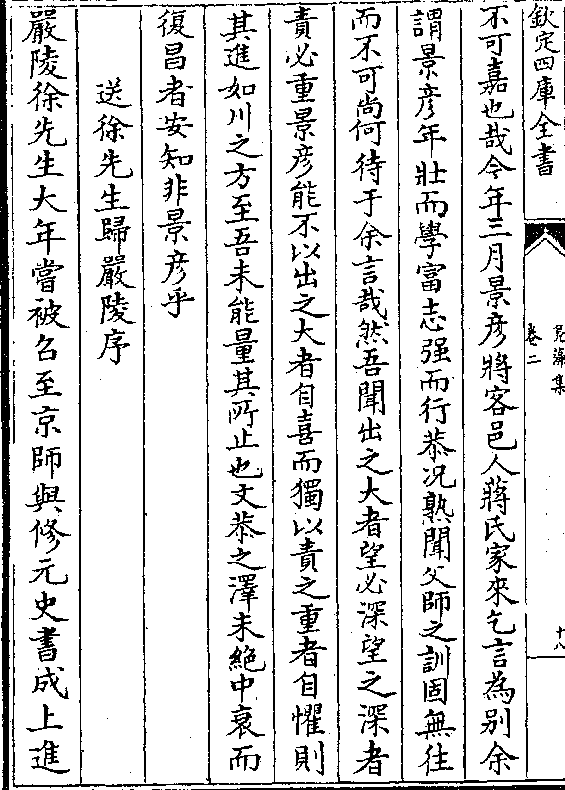 欽定四庫全書
鳧藻集
卷二
十八
不可嘉也哉今年三月景彦將客邑人蔣氏家來乞言為别余
謂景彦年壯而學富志强而行恭况熟聞父師之訓固無往
而不可尚何待于余言哉然吾聞出之大者望必深望之深者
責必重景彦能不以出之大者自喜而獨以責之重者自懼則
其進如川之方至吾未能量其所止也文恭之澤未絶中衰而
復昌者安知非景彦乎
送徐先生歸嚴陵序
嚴陵徐先生大年嘗被召至京師與修元史書成上進